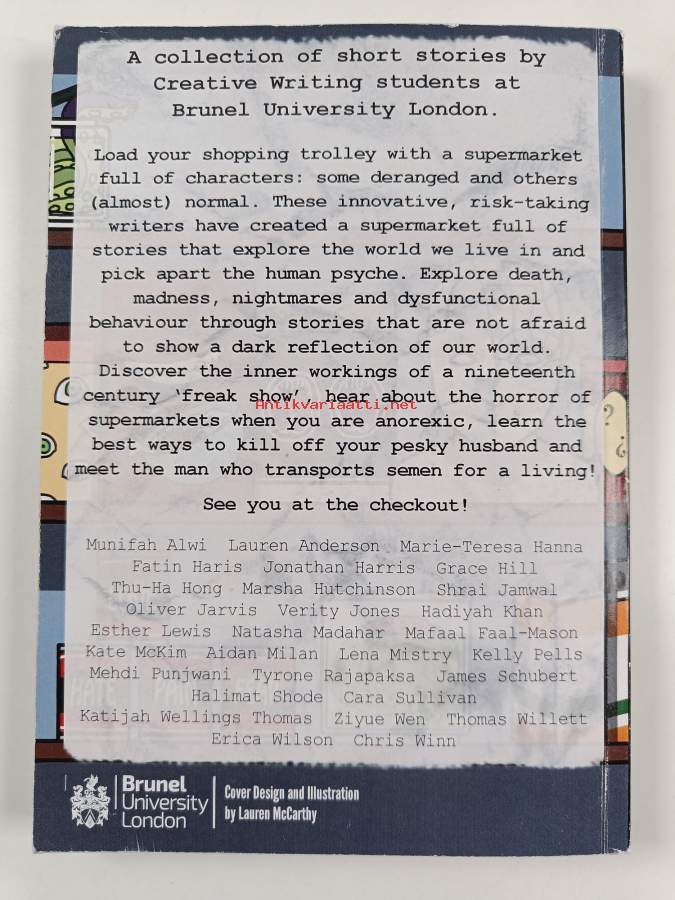 A collection of short stories by
Creative Writing students at
Brunel University London.
Load your shopping trolley with a supermarket
full of characters: some deranged and others
(almost) normal. These innovative, risk-taking
writers have created a supermarket full of
stories that explore the world we live in and
pick apart the human psyche. Explore death,
madness, nightmares and dysfunctional
behaviour through stories that are not afraid
to show a dark reflection of our world.
Discover the inner workings of a nineteenth
century ‘freak show’, hear about the horror of
Antikvariaatti.net
supermarkets when you are anorexic, learn the
best ways to kill off your pesky husband and
meet the man who transports semen for a living!
See you at the checkout!
Munifah Alwi Lauren Anderson Marie-Teresa Hanna
Fatin Haris Jonathan Harris Grace Hill
Thu-Ha Hong Marsha Hutchinson Shrai Jamwal
Oliver Jarvis Verity Jones Hadiyah Khan
Esther Lewis Natasha Madahar Mafaal Faal-Mason
Kate McKim Aidan Milan Lena Mistry Kelly Pells
Mehdi Punjwani Tyrone Rajapaksa James Schubert
Halimat Shode Cara Sullivan
Katijah Wellings Thomas Ziyue Wen Thomas Willett
Erica Wilson Chris Winn
Brunel
University
London
Cover Design and Illustration
by Lauren McCarthy